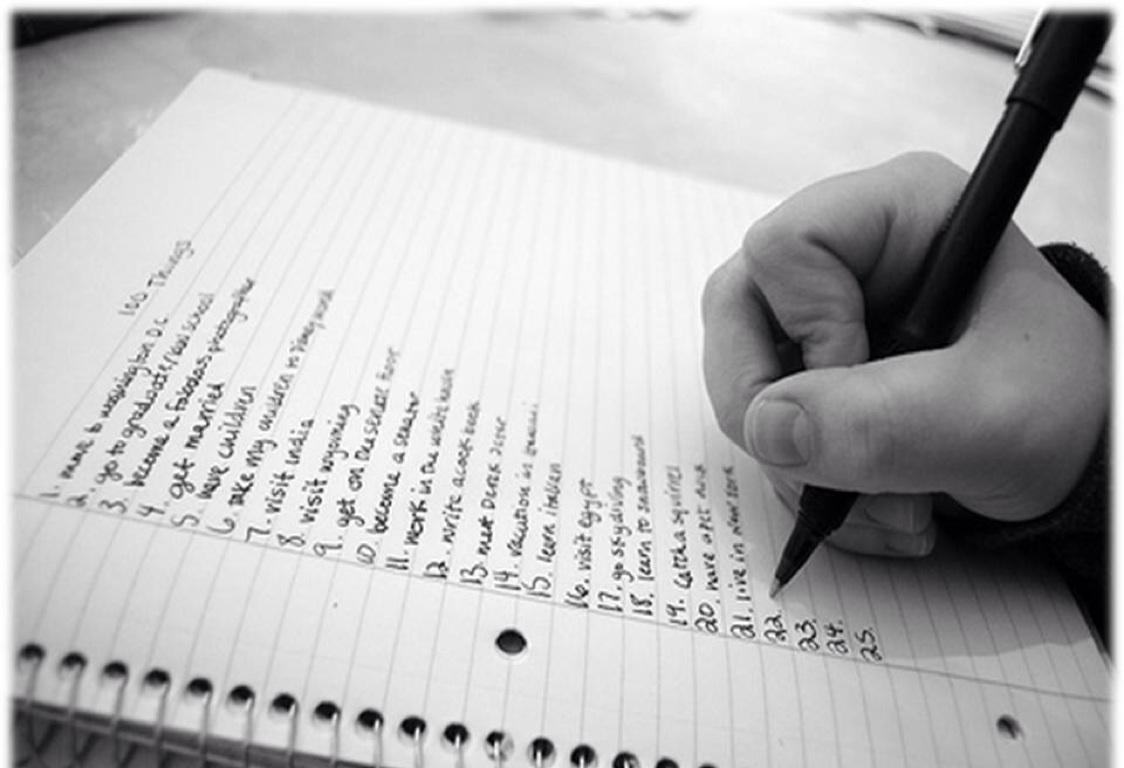 100 Things
1. move to washington D.C.
2. go to graduate/law school
3. become a fabulous photographer
4. get married
5. have children
6. take my children to Disney world
7. visit India
8. visit wyoming
9. get on the senate floor
10. become a senator
11. work in the white house
12. write a cook book
13. meet Derek Jeter
14. vacation in
15. learn italian
16. visit egypt
17. go skydiving
18. learn to
19. catch a squirrel
20. have a pet
21. live in new york
22.
23.
24.
25.